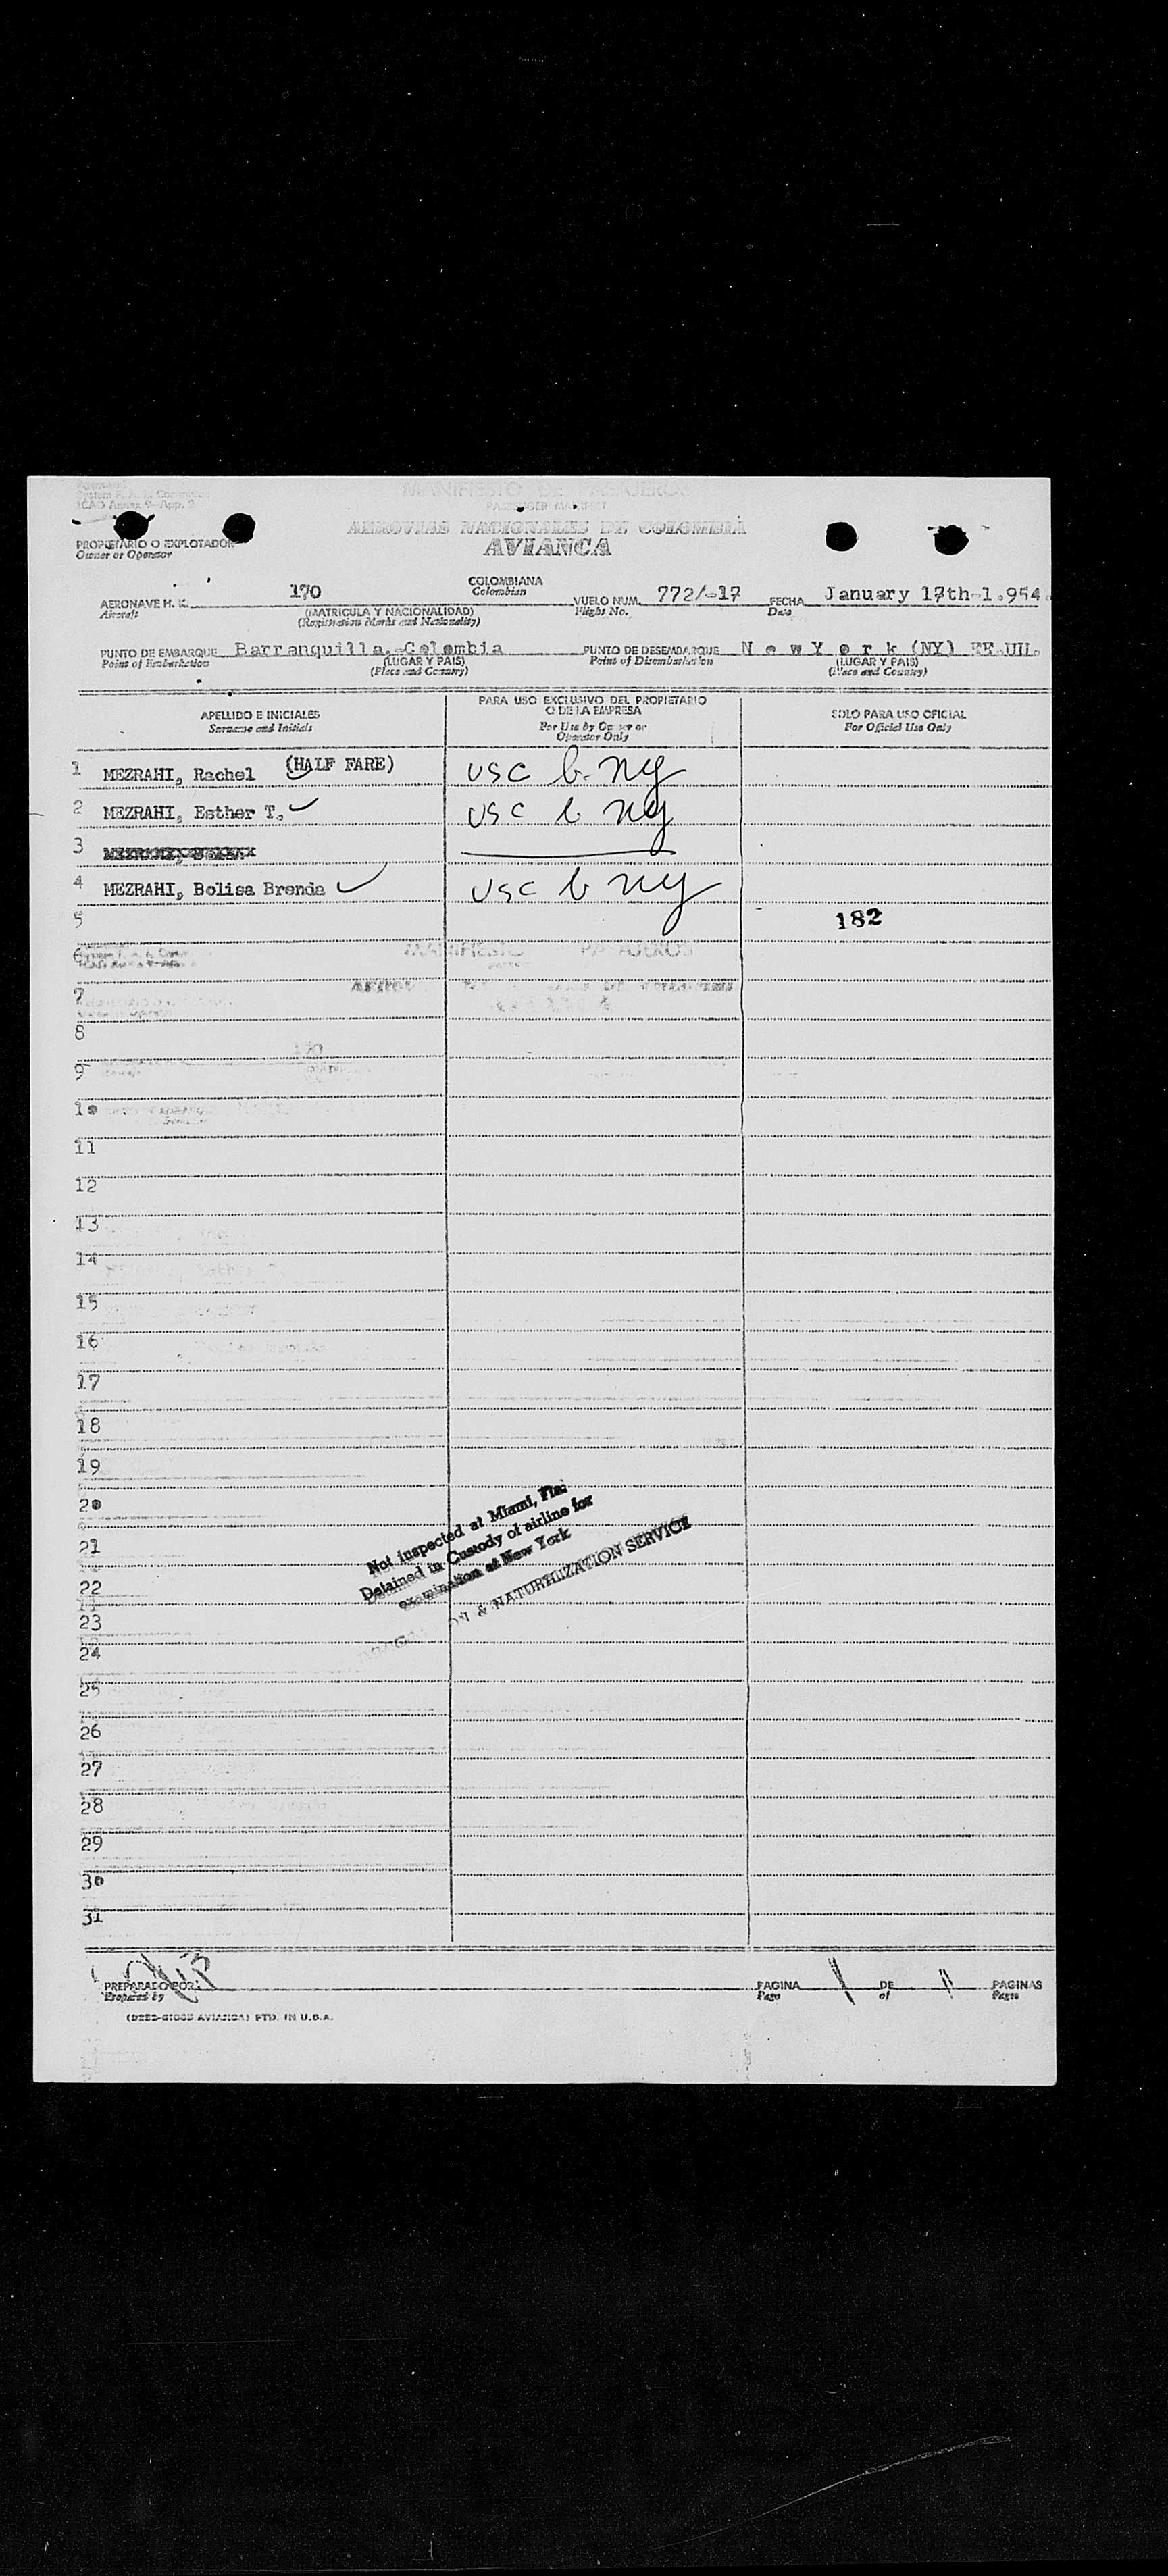 ICAO Annex 9-App. 2
MANIFIESTO DE PASAJEROS
PASSENGER MANIFEST
AEROVIAS NACIONALES DE COLOMBIA
AVIANCA
PROPIETARIO O EXPLOTADOR
Owner or Operator
AERONAVE H. K. 170 COLOMBIANA VUELO NUM. 772/-17 FECHA January 17th-1.954.
Aircraft (MATRICULA Y NACIONALIDAD) Colombian Flight No. Date
(Registration Marks and Nationality)
PUNTO DE EMBARQUE Barranquilla.-Colombia PUNTO DE DESEMBARQUE N e w Y o r k (NY) EE.UU.
Point of Embarkation (LUGAR Y PAIS) Point of Disembarkation (LUGAR Y PAIS)
(Place and Country) (Place and Country)
APELLIDO E INICIALES PARA USO EXCLUSIVO DEL PROPIETARIO SOLO PARA USO OFICIAL
Surname and Initials O DE LA EMPRESA For Official Use Only
For Use by Owner or
Operator Only
1 MEZRAHI, Rachel (HALF FARE) usc b. ny
2 MEZRAHI, Esther T. usc b ny
3
4 MEZRAHI, Bolisa Brenda usc b ny
5 182
6
7
8
9
10
11
12
13
14
15
16
17
18
19
20
21
22
23
24
25
26
27
28
29
30
31
Not inspected at Miami, Fla.
Detained in Custody of airline for
examination at New York
& NATURALIZATION SERVICE
PREPARADO POR: PAGINA 1 DE 11 PAGINAS
Prepared by Page of Pages
AVIANCA) PTD. IN U.S.A.